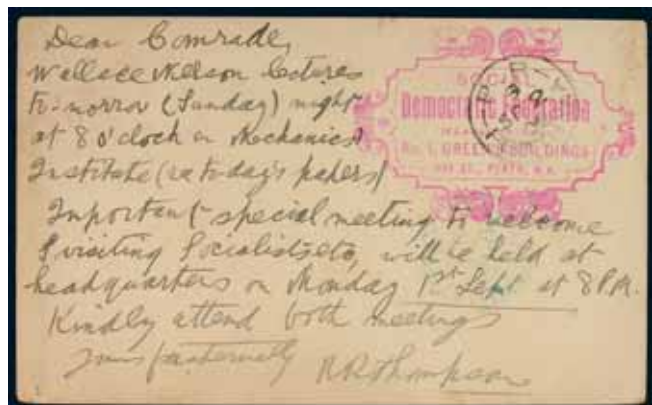 Dear Comrade,
Wallace Nelson lectures
to-morrow (Sunday) night
at 8 o'clock in Mechanics
Institute (vide today's papers)
Important special meeting to welcome
visiting Socialists etc, will be held at
headquarters on Monday 1st Sept at 8 P.M.
Kindly attend both meetings
Yours fraternally
R R Thompson
SOCIAL
Democratic Federation
No. 1, GREEN'S BUILDINGS
PERTH, W.A.
PERTH